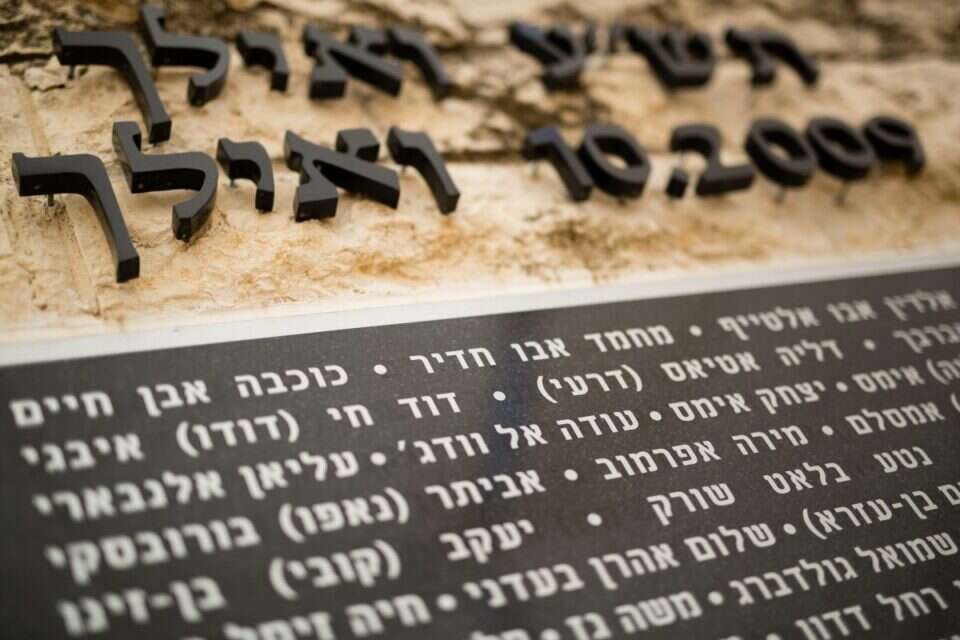 תשרי ואילך
10.2009 ואילך
אלדין אבו אלטייף • מחמד אבו חדיר • כוכבה אבן חיים
דליה אטיאס (דרעי) • דוד חי (דודו) איבגי
אימס • יצחק אימס • עודה אל וודג׳ • עליאן אלנבארי
אמסלם • מירה אפרמוב • אביתר (נאפו) בורובסקי
נטע בלאט שורק • יעקב (קובי) בן-זינו
בן-עזרא) • שלום אהרן בעדני • חיה זיסל
שמואל גולדברג • משה גז
רחל דדון